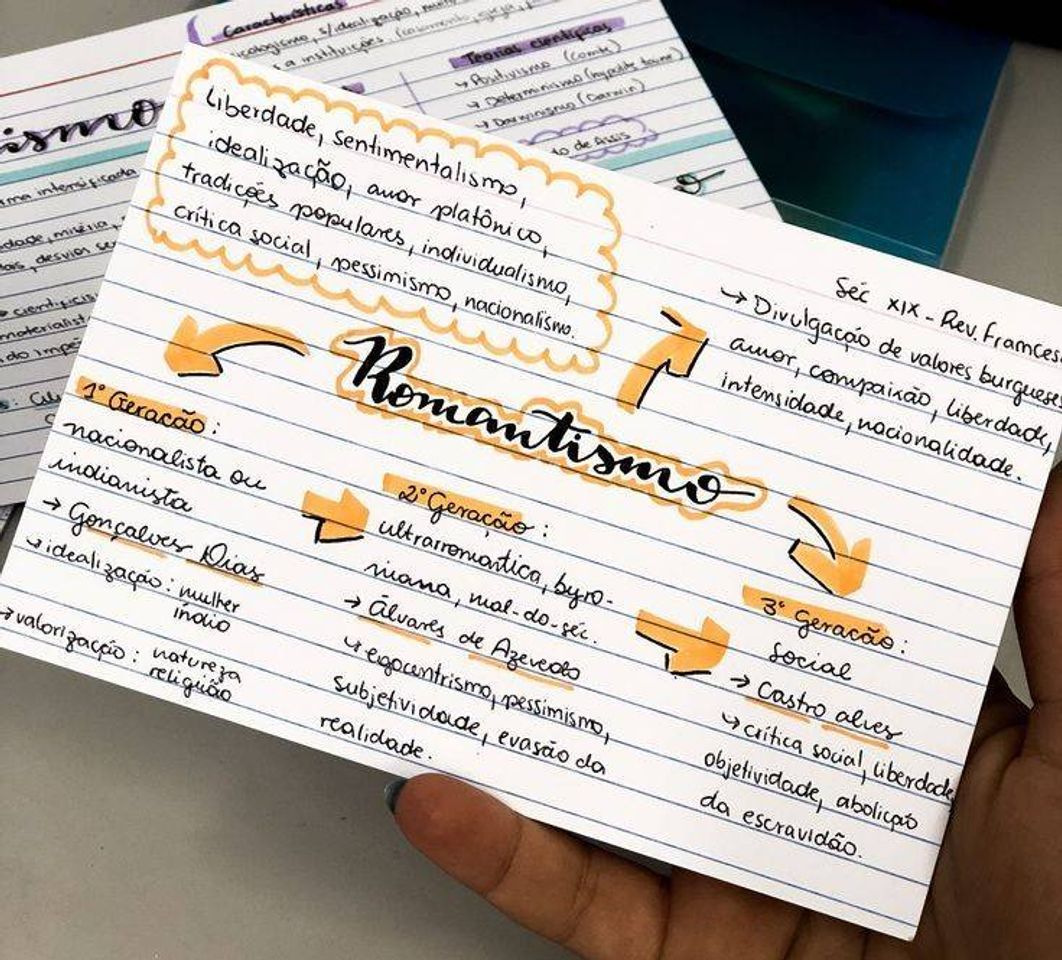 Características
s/idealização,
a instituições (casamento, igreja,
Teorias científicas
→ Positivismo (Comte)
→ Determinismo (hypolite taine)
→ Darwinismo (Darwin)
to de Assis
ismo
ma intensificada
dade, miséria,
tais, desvios
materialist
Liberdade, sentimentalismo,
idealização, amor platônico,
tradições populares, individualismo,
crítica social, pessimismo, nacionalismo.
Séc XIX - Rev. Frances
→ Divulgação de valores burgueses
amor, compaixão, liberdade,
intensidade, nacionalidade.
Romantismo
1º Geração:
nacionalista ou
indianista
→ Gonçalves Dias
↳ idealização: mulher
índio
→ valorização: natureza
religião
2º Geração:
ultrarromântica, byro-
niana, mal-do-séc.
→ Álvares de Azevedo
↳ egocentrismo, pessimismo,
subjetividade, evasão da
realidade.
3º Geração:
Social
→ Castro alves
↳ crítica social, liberdade
objetividade, abolição
da escravidão.